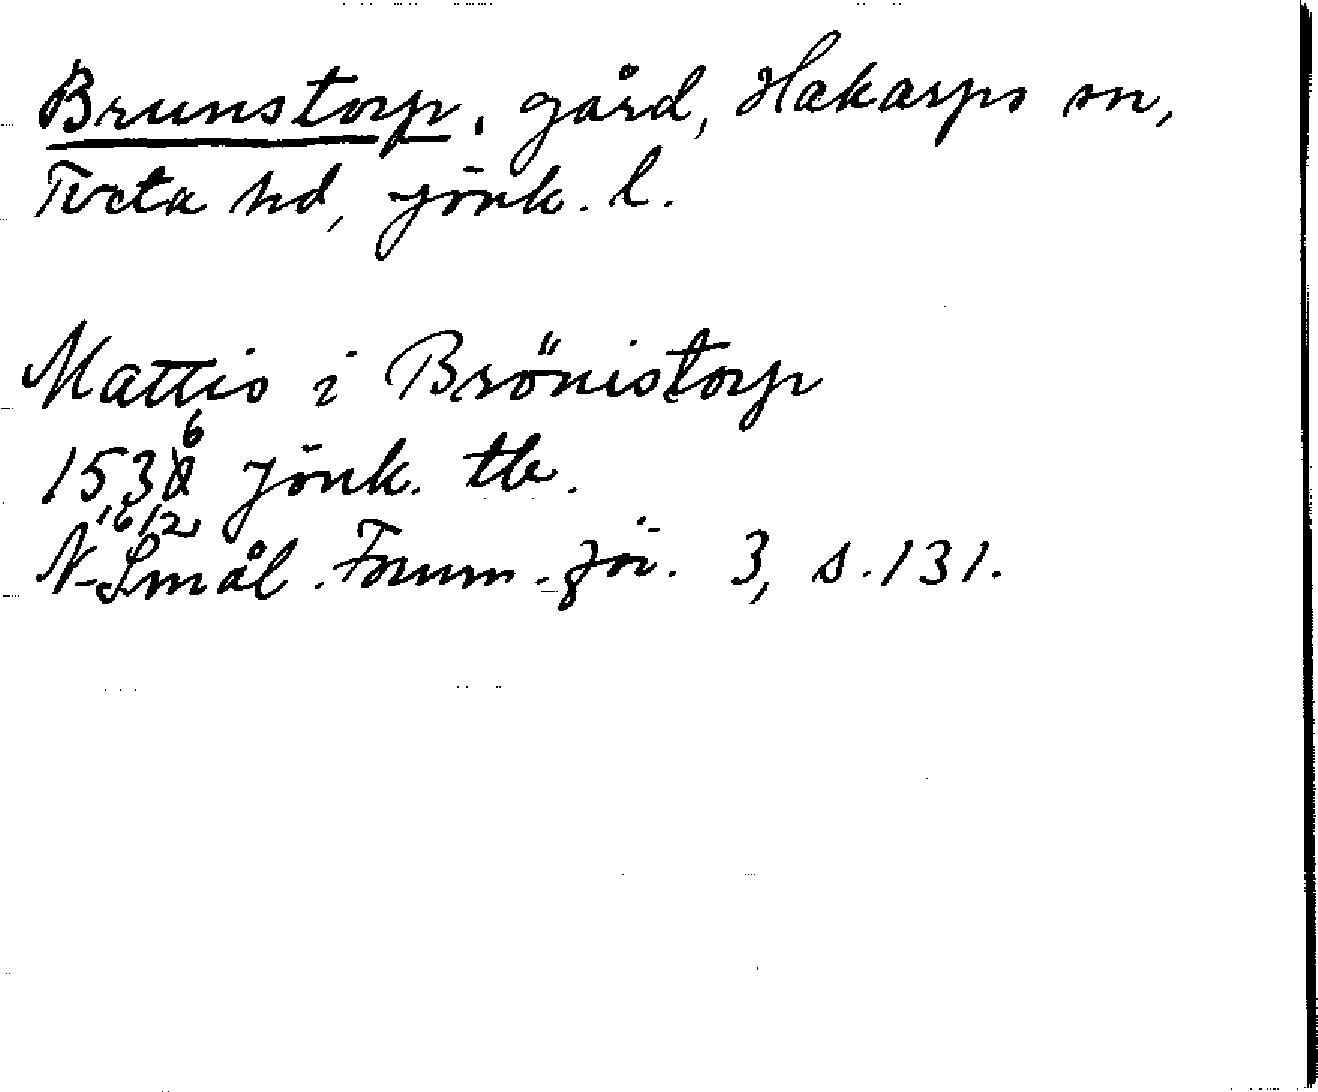 Brunstorp, gård, Hakarps sn,
Tveta hd, Jönk. l.
Mattis i Brönistorp
1536 Jönk. tb.
16/2
N. Smål. Fornm. för. 3, s. 131.